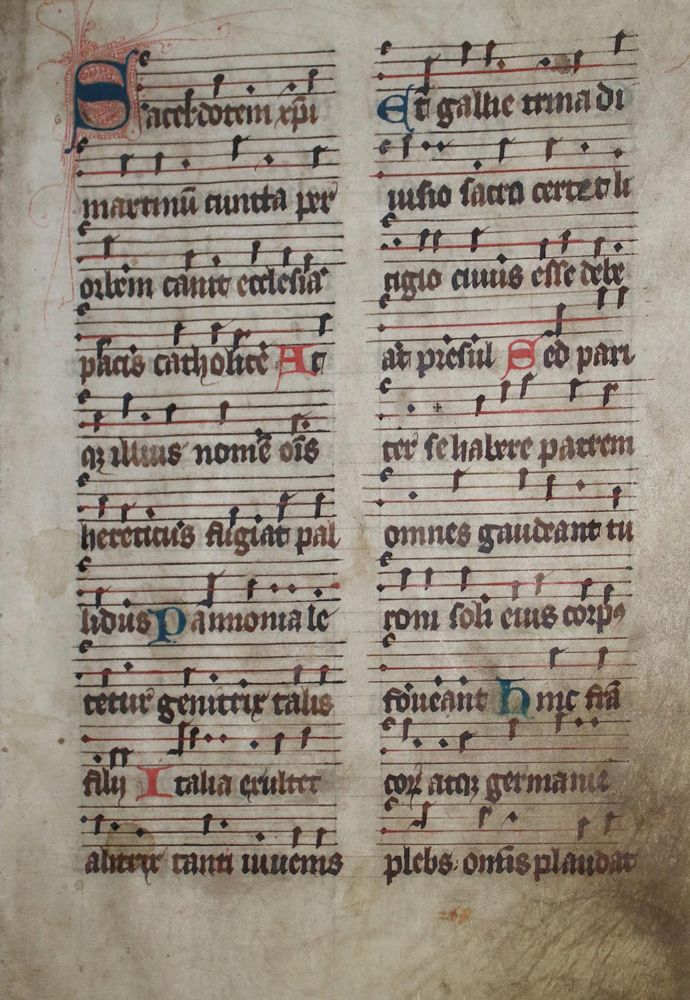 Sacerdotem xp̄i
martinū cuncta per
orbem canit ecclesia
pacis catholice At
qꝫ illius nomē oīs
hereticus fugiat pal
lidus Pannonia le
tetur genitrix talis
filij Italia exultet
alitrix tanti iuuenis
Et gallie trina di
uisio sacro certet li
tigio cuius esse debe
at presul Sed pari
ter se habere patrem
omnes gaudeant tu
roni soli eius corpꝰ
foueant Hinc frā
coꝝ atqꝫ germanie
plebs omīs plaudat